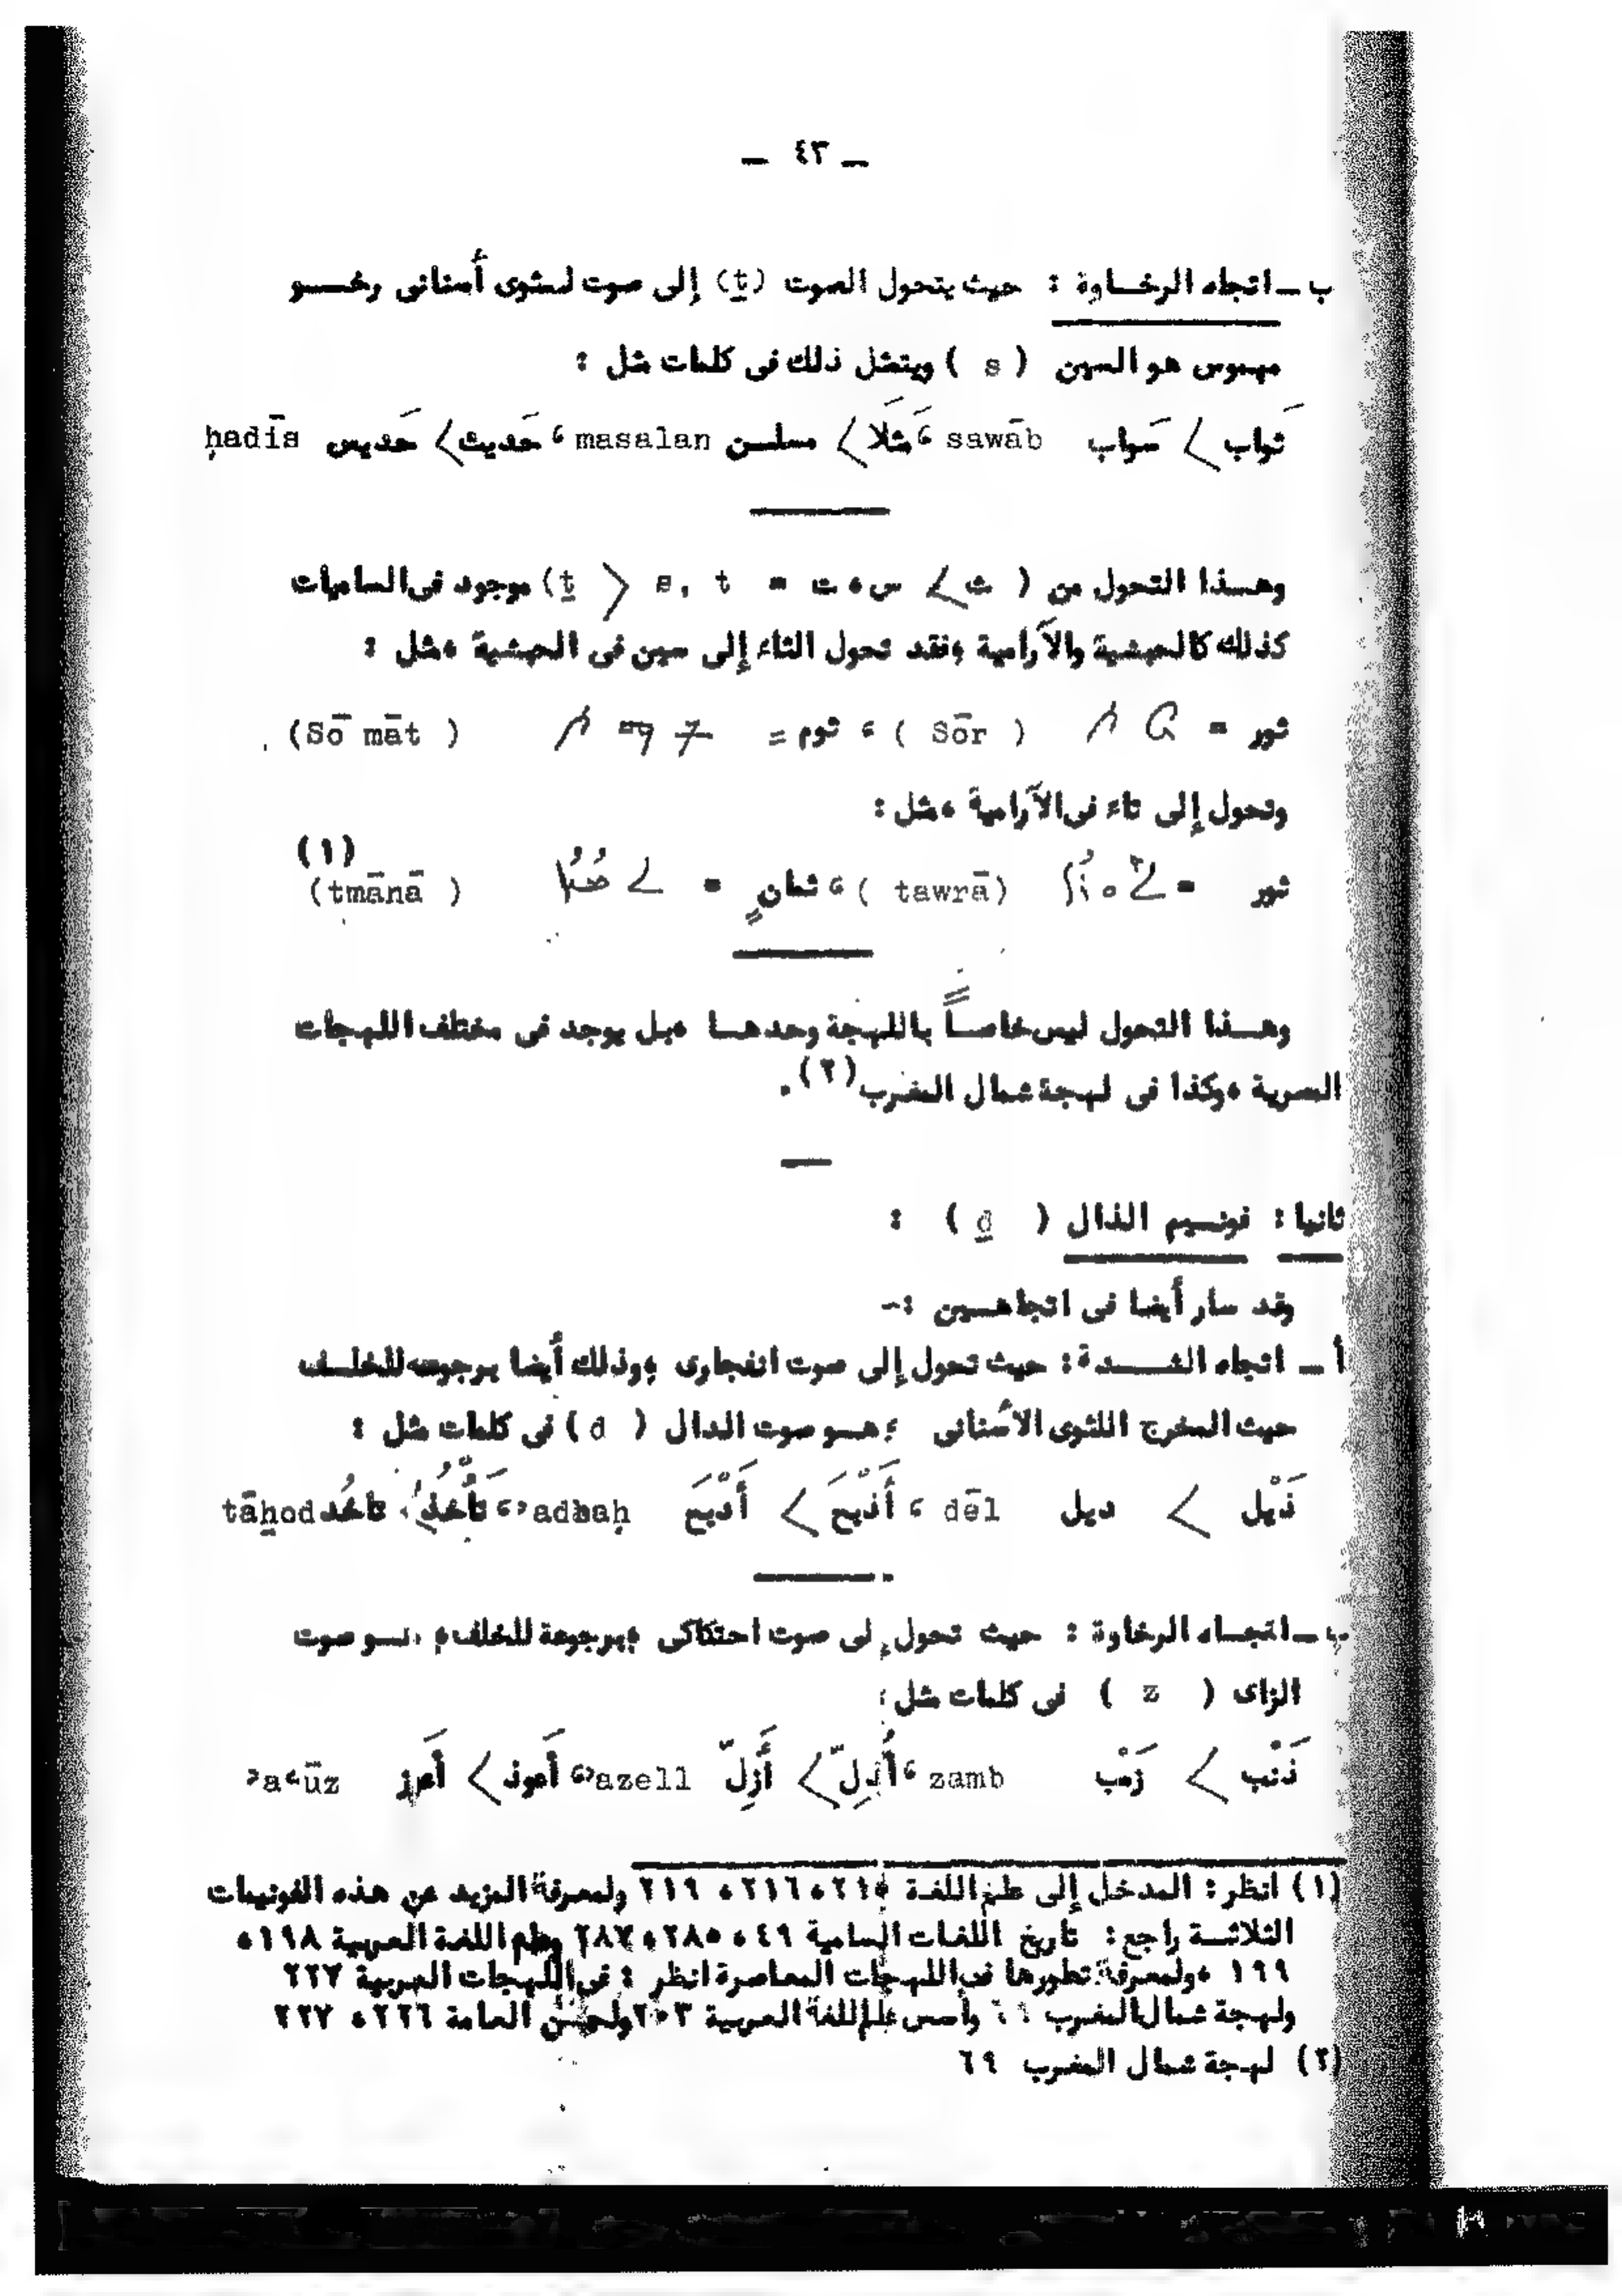 — ٤٣ —
ب ـ اتجاه الرخـاوة : حيث يتحول الصوت (ṯ) إلى صوت لـثوى أسنانى رخـــو
مهموس هو السين ( s ) ويتمثل ذلك فى كلمات مثل :
ثَواب > سَواب sawāb ، مَثَلاً > مسلـن masalan ، حَديث > حَديس ḥadīs
وهـذا التحول من ( ث > س ، ت = ṯ > s, t) موجود فى الساميات
كذلك كالحبشية والآرامية ، فقد تحول الثاء إلى سين فى الحبشية ، مثل :
ثور = ( Sōr ) ، ثوم = (Sō māt )
وتحول إلى تاء فى الآرامية ، مثل :
ثور = ( tawrā) ، ثمانٍ = (tmānā ) (١)
وهـذا التحول ليس خاصـاً باللهجة وحدهـا ، بل يوجد فى مختلف اللهجات
المصرية ، وكذا فى لهجة شمال المغرب (٢) .
ثانيا : فونـيم الذال ( ḏ ) :
وقد سار أيضا فى اتجاهـين :-
أ ـ اتجاه الشـــدة : حيث تحول إلى صوت انفجارى ، وذلك أيضا برجوعه للخلـف
حيث المخرج اللثوى الأسنانى ، هـو صوت الدال ( d ) فى كلمات مثل :
ذَيْل > ديل dēl ، أَذْبَح > أَدْبَح ʾadbaḥ ، تَأْخُذ ، تاخُد tāḫod
ب ـ اتجـاه الرخاوة : حيث تحول إلى صوت احتكاكى ، برجوعه للخلف ، هـو صوت
الزاى ( z ) فى كلمات مثل :
ذَنْب > زَمْب zamb ، أَذِلّ > أَزِلّ ʾazell ، أَعوذ > أَعوز ʾaʿūz
(١) انظر : المدخل إلى علم اللغـة ٢١٥ ، ٢١٦ ، ٢١٩ ولمعرفة المزيد عن هذه الفونيمات
الثلاثـة راجع : تاريخ اللغات السامية ٤٩ ، ٢٨٥ ، ٢٨٧ وعلم اللغة العربية ١٩٨ ،
١٩٩ ، ولمعرفة تطورها فى اللهجات المعاصرة انظر : فى اللهجات العربية ٢٢٧
ولهجة شمال المغرب وأسس علم اللغة العربية ٢٠٣ ولحن العامة ٢٢٦ ، ٢٢٧
(٢) لهجة شمال المغرب ٦٩